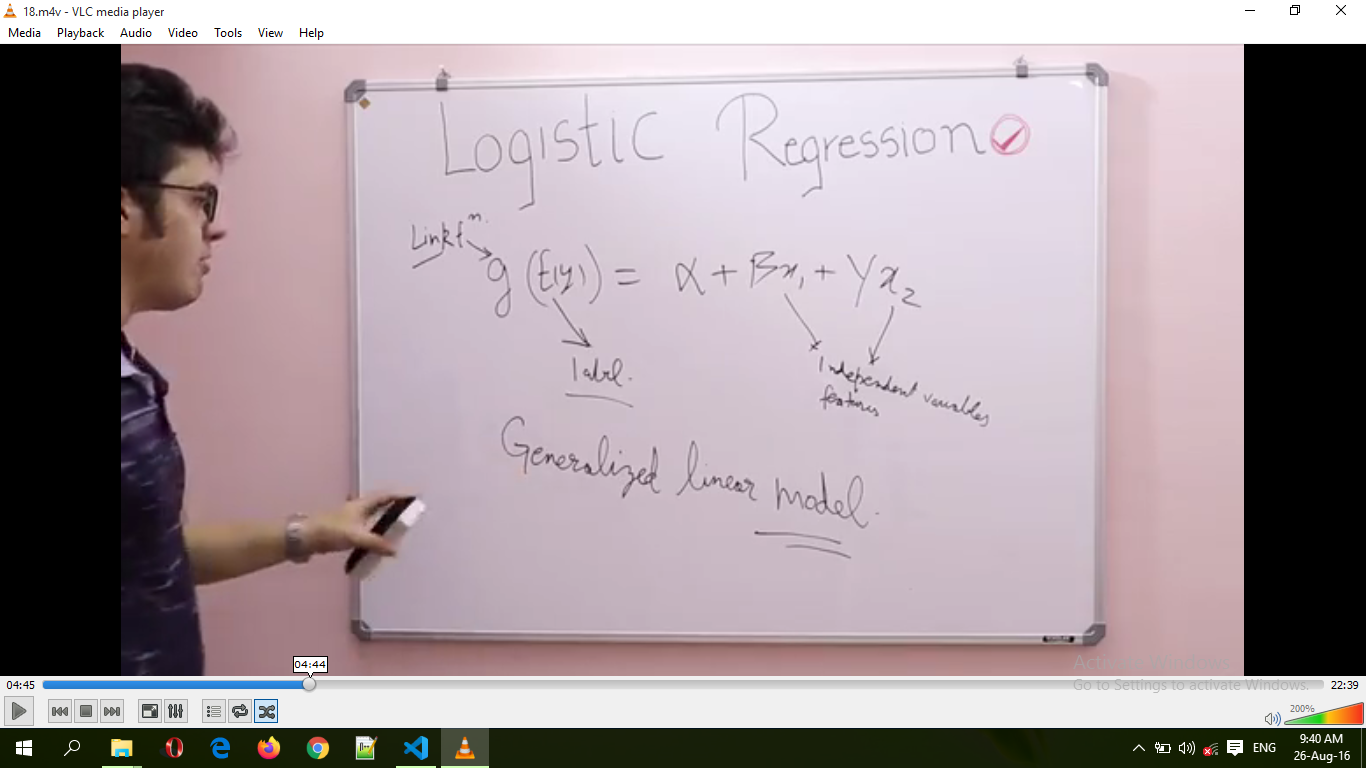 18.m4v - VLC media player
Media Playback Audio Video Tools View Help
Logistic Regression
Link fⁿ.
g (E(y)) = α + βx₁ + γx₂
label.
Independent variables
features
Generalized linear model.
Activate Windows
Go to Settings to activate Windows.
04:44
04:45
22:39
200%
ENG
9:40 AM
26-Aug-16